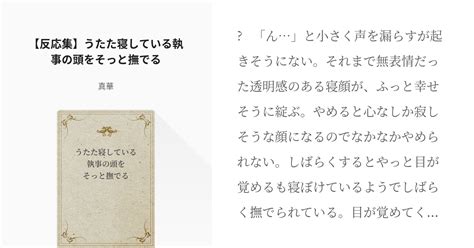 【反応集】うたた寝している執
事の頭をそっと撫でる
真華
うたた寝している
執事の頭を
そっと撫でる
? 「ん…」と小さく声を漏らすが起
きそうにない。それまで無表情だっ
た透明感のある寝顔が、ふっと幸せ
そうに綻ぶ。やめると心なしか寂し
そうな顔になるのでなかなかやめら
れない。しばらくするとやっと目が
覚めるも寝ぼけているようでしばら
く撫でられている。目が覚めてく…